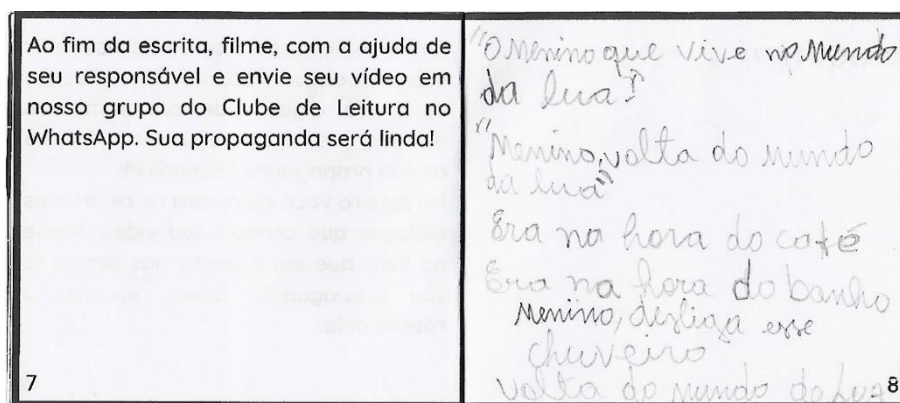 Ao fim da escrita, filme, com a ajuda de
seu responsável e envie seu vídeo em
nosso grupo do Clube de Leitura no
WhatsApp. Sua propaganda será linda!
7
"O Menino que vive no Mundo
da lua"
"Menino, volta do mundo
da lua"
Era na hora do café
Era na hora do banho
Menino, desliga esse
chuveiro
volta do mundo da Lua
8